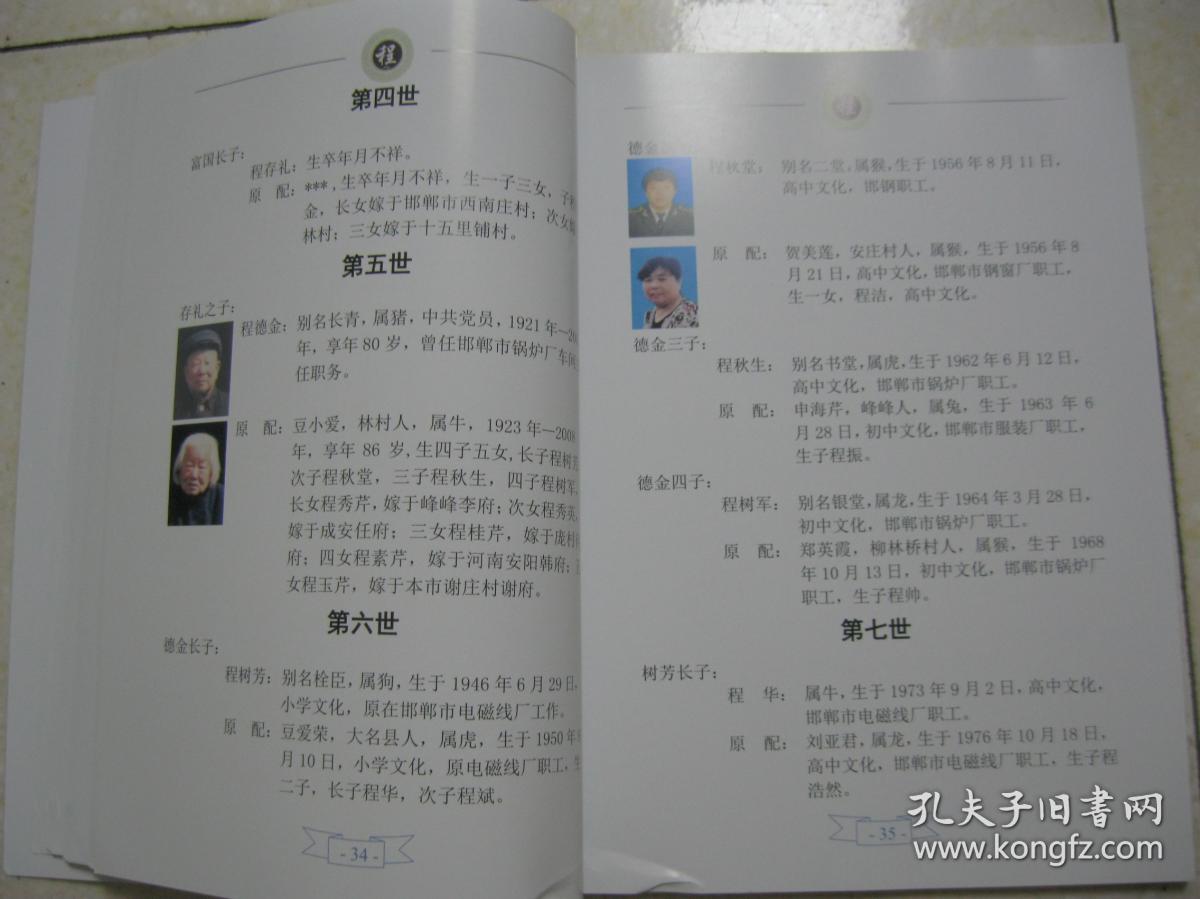 程
第四世
富国长子：
程存礼：生卒年月不祥。
原 配：***，生卒年月不祥，生一子三女，子
金，长女嫁于邯郸市西南庄村；次女
林村；三女嫁于十五里铺村。
第五世
存礼之子：
程德金：别名长青，属猪，中共党员，1921年—20
年，享年80岁，曾任邯郸市锅炉厂车间
任职务。
原 配：豆小爱，林村人，属牛，1923年—2008
年，享年86岁,生四子五女,长子程树芳
次子程秋堂，三子程秋生，四子程树军，
长女程秀芹，嫁于峰峰李府；次女程秀英，
嫁于成安任府；三女程桂芹，嫁于庞村
府；四女程素芹，嫁于河南安阳韩府；
女程玉芹，嫁于本市谢庄村谢府。
第六世
德金长子：
程树芳：别名栓臣，属狗，生于1946年6月29日，
小学文化，原在邯郸市电磁线厂工作。
原 配：豆爱荣，大名县人，属虎，生于1950年
月10日，小学文化，原电磁线厂职工，生
二子，长子程华，次子程斌。
- 34 -
程
德金
程秋堂：别名二堂，属猴，生于1956年8月11日，
高中文化，邯钢职工。
原 配：贺美莲，安庄村人，属猴，生于1956年8
月21日，高中文化，邯郸市钢窗厂职工，
生一女，程洁，高中文化。
德金三子：
程秋生：别名书堂，属虎，生于1962年6月12日，
高中文化，邯郸市锅炉厂职工。
原 配：申海芹，峰峰人，属兔，生于1963年6
月28日，初中文化，邯郸市服装厂职工，
生子程振。
德金四子：
程树军：别名银堂，属龙，生于1964年3月28日，
初中文化，邯郸市锅炉厂职工。
原 配：郑英霞，柳林桥村人，属猴，生于1968
年10月13日，初中文化，邯郸市锅炉厂
职工，生子程帅。
第七世
树芳长子：
程 华：属牛，生于1973年9月2日，高中文化，
邯郸市电磁线厂职工。
原 配：刘亚君，属龙，生于1976年10月18日，
高中文化，邯郸市电磁线厂职工，生子程
浩然。
- 35 -
孔夫子旧书网
www.kongfz.com